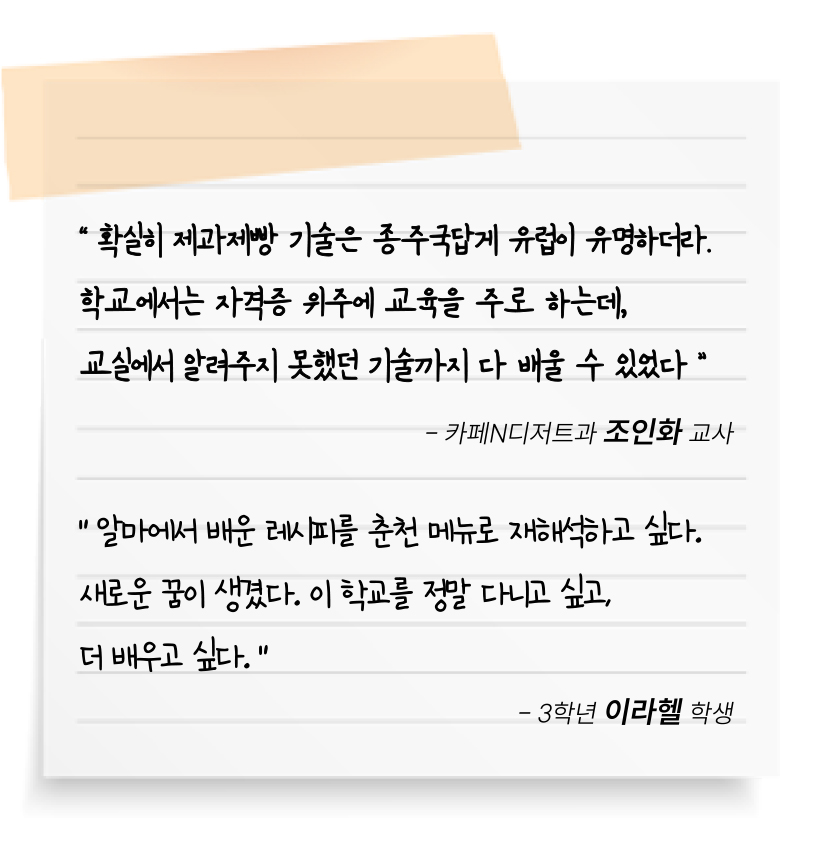 “ 확실히 제과제빵 기술은 종주국답게 유럽이 유명하더라.
학교에서는 자격증 위주에 교육을 주로 하는데,
교실에서 알려주지 못했던 기술까지 다 배울 수 있었다 ”
- 카페N디저트과 조인화 교사
" 알마에서 배운 레시피를 춘천 메뉴로 재해석하고 싶다.
새로운 꿈이 생겼다. 이 학교를 정말 다니고 싶고,
더 배우고 싶다. "
- 3학년 이라헬 학생